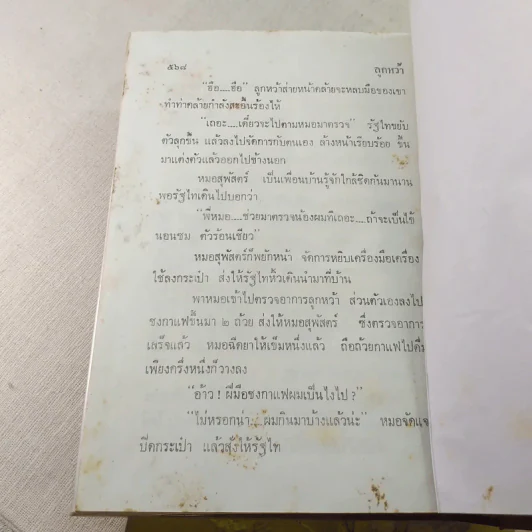 ๕๖๘ ลูกหว้า
"ฮือ....ฮือ" ลูกหว้าส่ายหน้าคล้ายจะหลบมือของเขา
ทำท่าคล้ายกำลังสะอื้นร้องไห้
"เถอะ....เดี๋ยวจะไปตามหมอมาตรวจ" รัฐไทขยับ
ตัวลุกขึ้น แล้วลงไปจัดการกับตนเอง ล้างหน้าเรียบร้อย ขึ้น
มาแต่งตัวแล้วออกไปข้างนอก
หมอสุพัสตร์ เป็นเพื่อนบ้านรู้จักใกล้ชิดกันมานาน
พอรัฐไทเดินไปบอกว่า
"พี่หมอ....ช่วยมาตรวจน้องผมทีเถอะ....ถ้าจะเป็นไข้
นอนซม ตัวร้อนเชียว"
หมอสุพัสตร์ก็พยักหน้า จัดการหยิบเครื่องมือเครื่อง
ใช้ลงกระเป๋า ส่งให้รัฐไทหิ้วเดินนำมาที่บ้าน
พาหมอเข้าไปตรวจอาการลูกหว้า ส่วนตัวเองลงไป
ชงกาแฟขึ้นมา ๒ ถ้วย ส่งให้หมอสุพัสตร์ ซึ่งตรวจอาการ
เสร็จแล้ว หมอฉีดยาให้เข็มหนึ่งแล้ว ถือถ้วยกาแฟไปดื่ม
เพียงครึ่งหนึ่งก็วางลง
"อ้าว ! ฝีมือชงกาแฟผมเป็นไงไป ?"
"ไม่หรอกน่า....ผมกินมาบ้างแล้วน่ะ" หมอจัดแจ
ปิดกระเป๋า แล้วสั่งให้รัฐไท